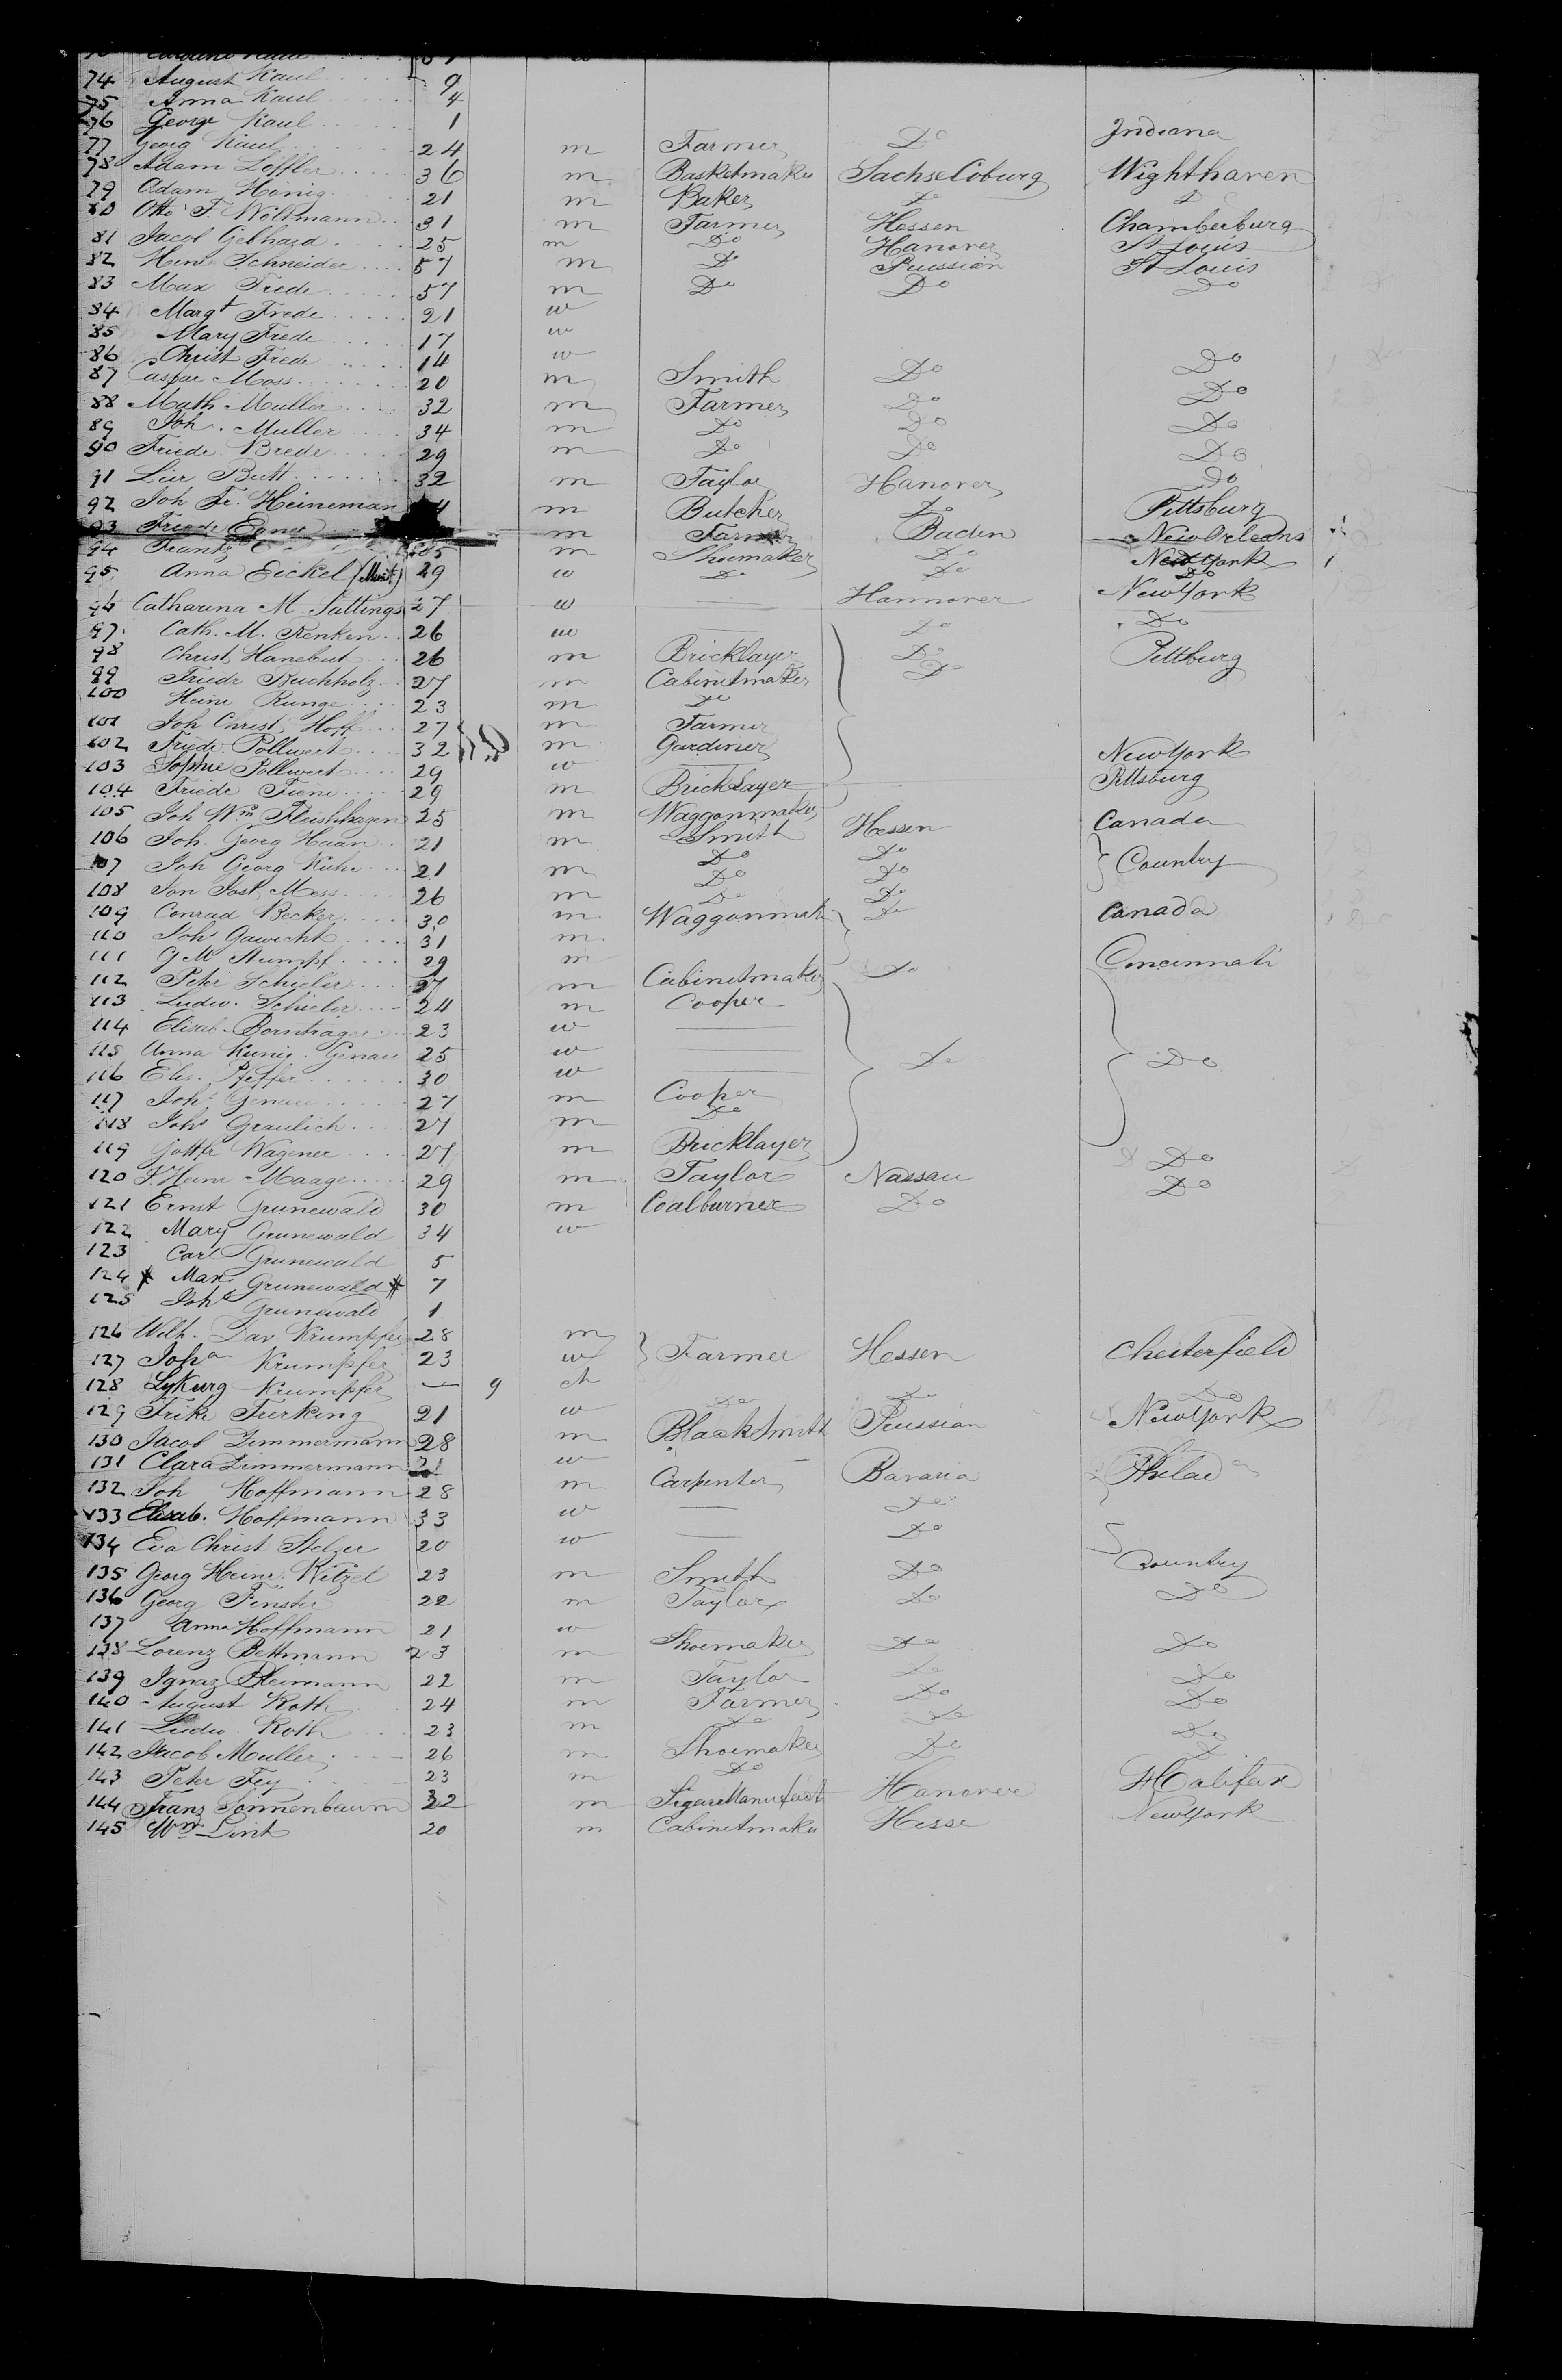 74 August Kaul 9
75 Anna Kaul 4
76 George Kaul 1 Indiana
77 Georg Kaul 24 m Farmer Do
78 Adam Löffler 36 m Basketmaker Sachse Coburg Wighthaven
79 Adam Hönig 21 m Baker Do Do
80 Otto F. Wolkmann 31 m Farmer Hessen Chamberburg
81 Jacob Gebhard 25 m Do Hanover St Louis
82 Heinr Schneider 57 m Do Prussian St Louis
83 Max Frede 57 m Do Do Do
84 Margt Frede 21 w
85 Mary Frede 17 w
86 Christ Frede 14 w
87 Caspar Moss 20 m Smith Do Do
88 Math Muller 32 m Farmer Do Do
89 Joh. Muller 34 m Do Do Do
90 Friedr Brede 29 m Do Do Do
91 Lier Butt 32 m Taylor Hanover Do
92 Joh Fr. Heineman m Butcher Do Pittsburg
93 Friedr m Farmer Baden New Orleans
94 Frantz m Shoemaker Do New York 1
95 Anna Eickel 29 w Do Do Do
96 Catharina M. Sattings 27 w — Hannover New York
97 Cath. M. Renken 26 w — Do Do
98 Christ Hanebut 26 m Bricklayer Do Pittburg
99 Friedr Buchholz 27 m Cabinetmaker Do
100 Heinr Runge 23 m Do
101 Joh Christ Hoff 27 m Farmer
102 Friedr Pollwert 32 m Gardiner New York
103 Sophie Pollwert 29 w Pittsburg
104 Friedr Fiene 29 m Bricklayer
105 Joh Wm Fleishhagen 25 m Waggonmaker Hessen Canada
106 Joh. Georg Haan 21 m Smith Do Country
107 Joh Georg Kuhn 21 m Do Do
108 Jon Jost Mess 26 m Do Do
109 Conrad Becker 30 m Waggonmak Do Canada
110 Joh Gawicht 31 m
111 G M Stumpf 29 m Cincinnati
112 Peter Schieler 27 m Cabinetmaker Do
113 Ludw. Schieler 24 m Cooper
114 Elisab. Bornträger 23 w —
115 Anna Kunig. Genau 25 w — Do Do
116 Elis. Pfeffer 30 w —
117 Joh Genau 27 m Cooper
118 Joh Graulich 27 m Do
119 Gottfr Wagener 27 m Bricklayer Do
120 J Heinr Maage 29 m Taylor Nassau Do
121 Ernst Grunewald 30 m Coalburner Do
122 Mary Grunewald 34 w
123 Carl Grunewald 5
124 Max Grunewald 7
125 Joh Grunewald 1
126 Wilh. Dav Krumpfer 28 m Farmer Hessen Chesterfield
127 Joha Krumpfer 23 w
128 Lykurg Krumpfer — 9 ch
129 Frike Fuerking 21 w Do Do Do
130 Jacob Zimmermann 28 m BlackSmith Prussian New York
131 Clara Zimmermann w —
132 Joh Hoffmann 28 m Carpenter Bavaria Philad
133 Elisab. Hoffmann 33 w — Do
134 Eva Christ Stelzer 20 w — Do
135 Georg Heinr. Kitzel 23 m Smith Do Country
136 Georg Finster 22 m Taylor Do Do
137 Anna Hoffmann 21 w
138 Lorenz Bettmann 23 m Shoemaker Do Do
139 Ignaz Fleimann 22 m Taylor Do Do
140 August Roth 24 m Farmer Do Do
141 Ludw Roth 23 m Do Do Do
142 Jacob Muller 26 m Shoemaker Do Do
143 Peter Fey 23 m Do
144 Franz Sonnenbaum 32 m SigareManufact Hanover Halifax
145 Wm Lint 20 m Cabinetmaker Hesse New York